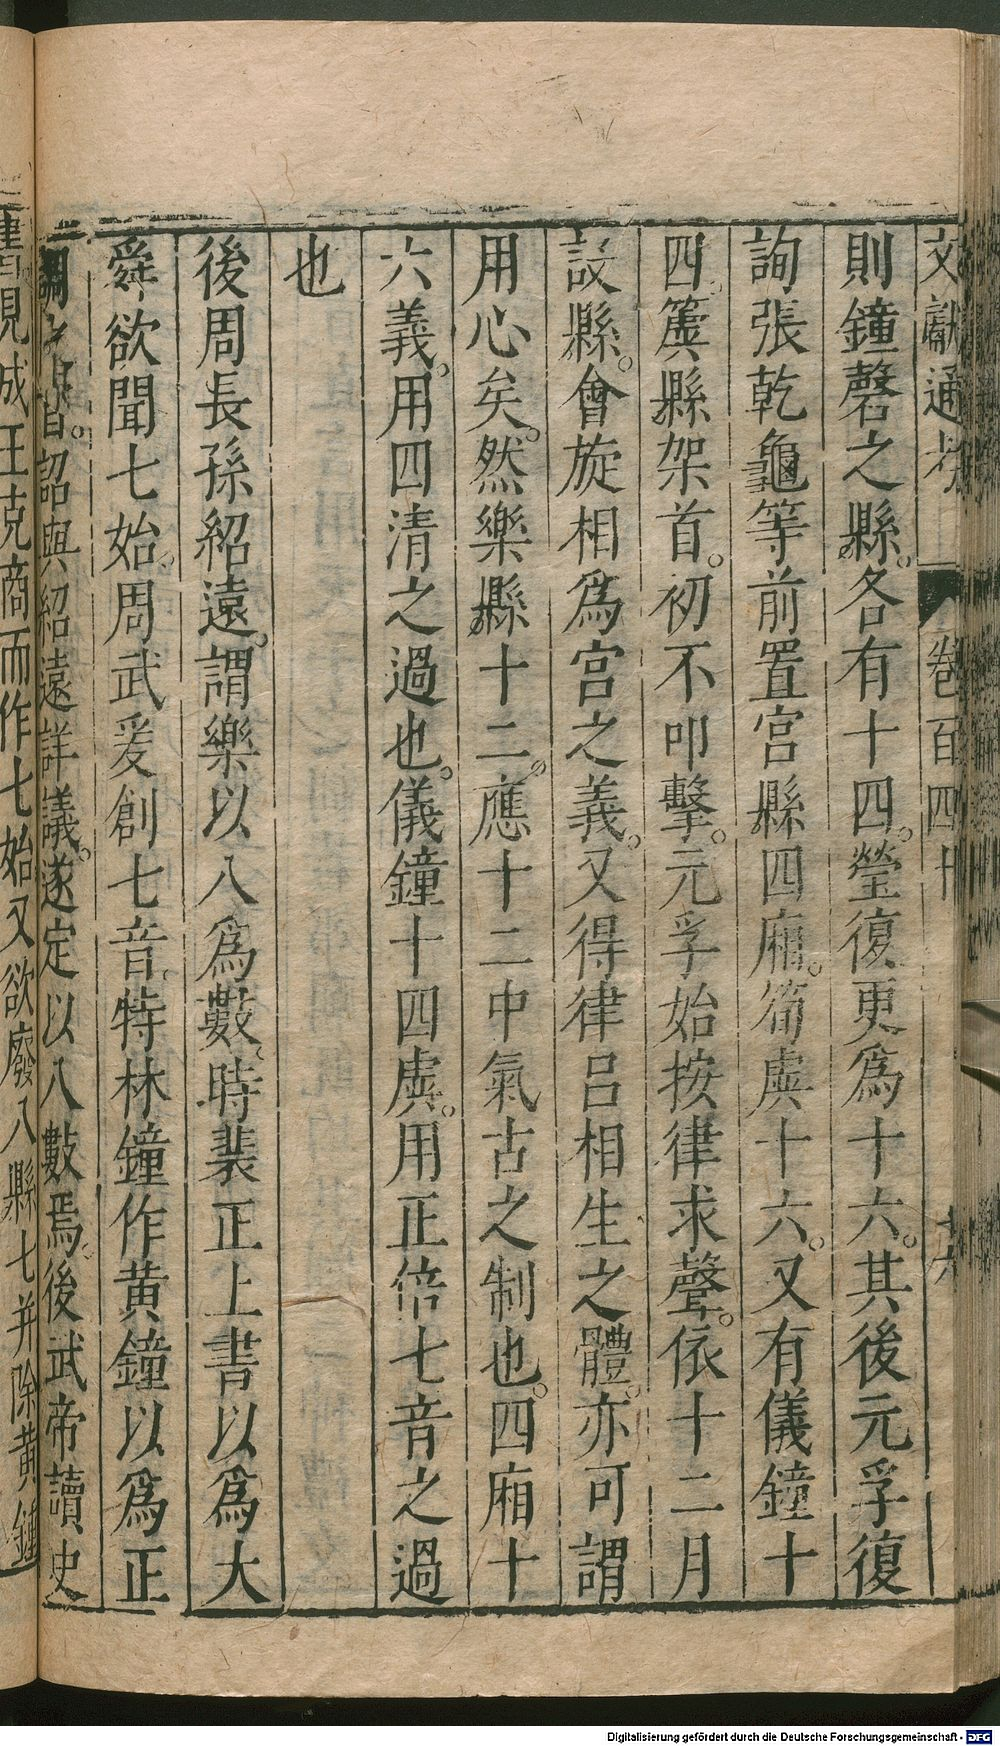 文獻通考 卷百四十 十六
則鐘磬之縣。各有十四。瑩復更爲十六。其後元孚復
詢張乾龜等前置宮縣四廂。筍虡十六。又有儀鐘十
四。簴縣架首。初不叩擊。元孚始按律求聲。依十二月
設縣。會旋相爲宮之義。又得律呂相生之體。亦可謂
用心矣。然樂縣十二。應十二中氣古之制也。四廂十
六義。用四清之過也。儀鐘十四虡。用正倍七音之過
也
後周長孫紹遠。謂樂以八爲數。時裴正上書以爲大
舜欲聞七始。周武爰創七音。特林鐘作黄鐘以爲正
調之首。詔與紹遠詳議。遂定以八數焉。後武帝讀史
書見武王克商而作七始又欲廢八縣七并除黄鐘
Digitalisierung gefördert durch die Deutsche Forschungsgemeinschaft - DFG